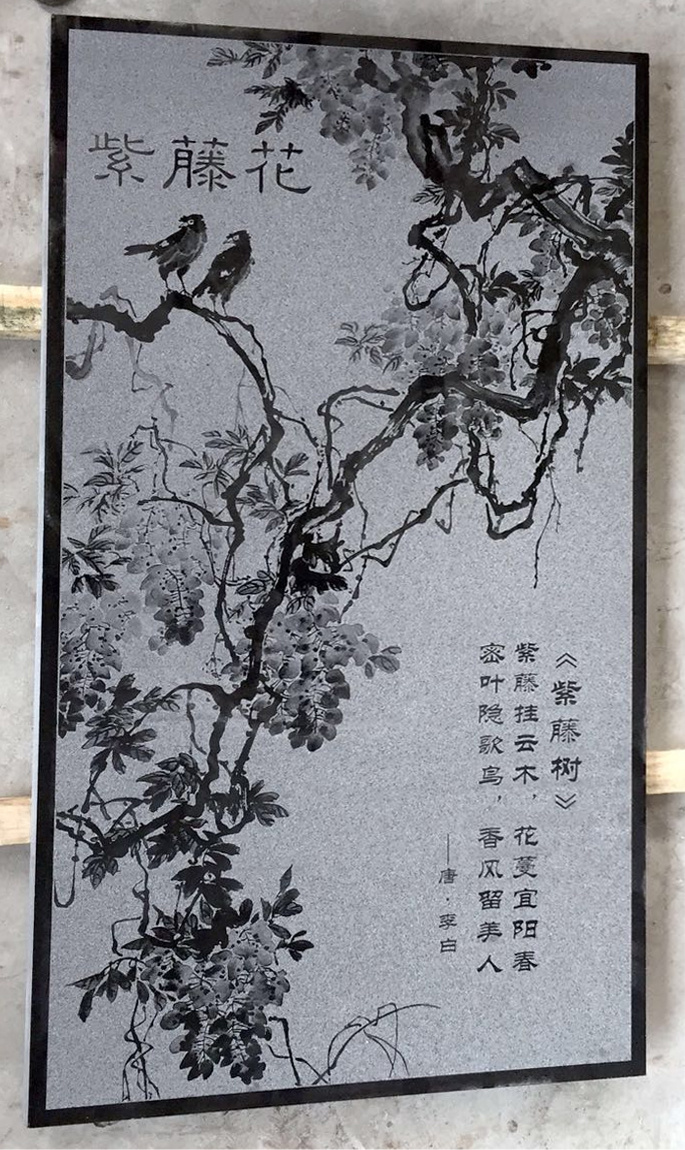 紫藤花
《紫藤树》
紫藤挂云木，花蔓宜阳春
密叶隐歌鸟，香风留美人
——唐·李白